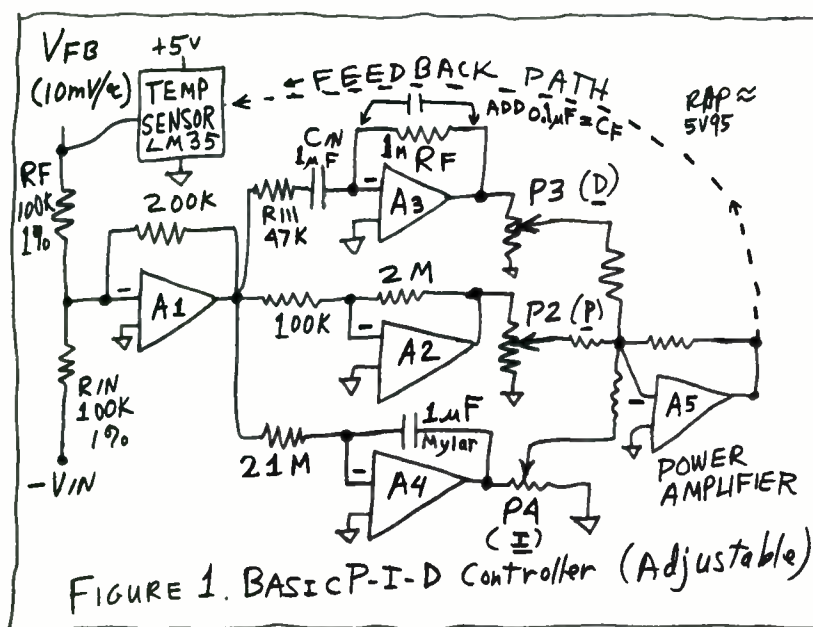 VFB
(10mV/°C)
+5V
TEMP
SENSOR
LM35
FEEDBACK PATH
ADD 0.1µF = CF
RAP ≈
5V95
RF
100K
1%
200K
CIN
1µF
1M RF
RIII
47K
A3
P3 (D)
A1
100K
2M
A2
P2 (P)
RIN
100K
1%
-VIN
21M
1µF
Mylar
A4
P4
(I)
A5
POWER
AMPLIFIER
FIGURE 1. BASIC P-I-D Controller (Adjustable)